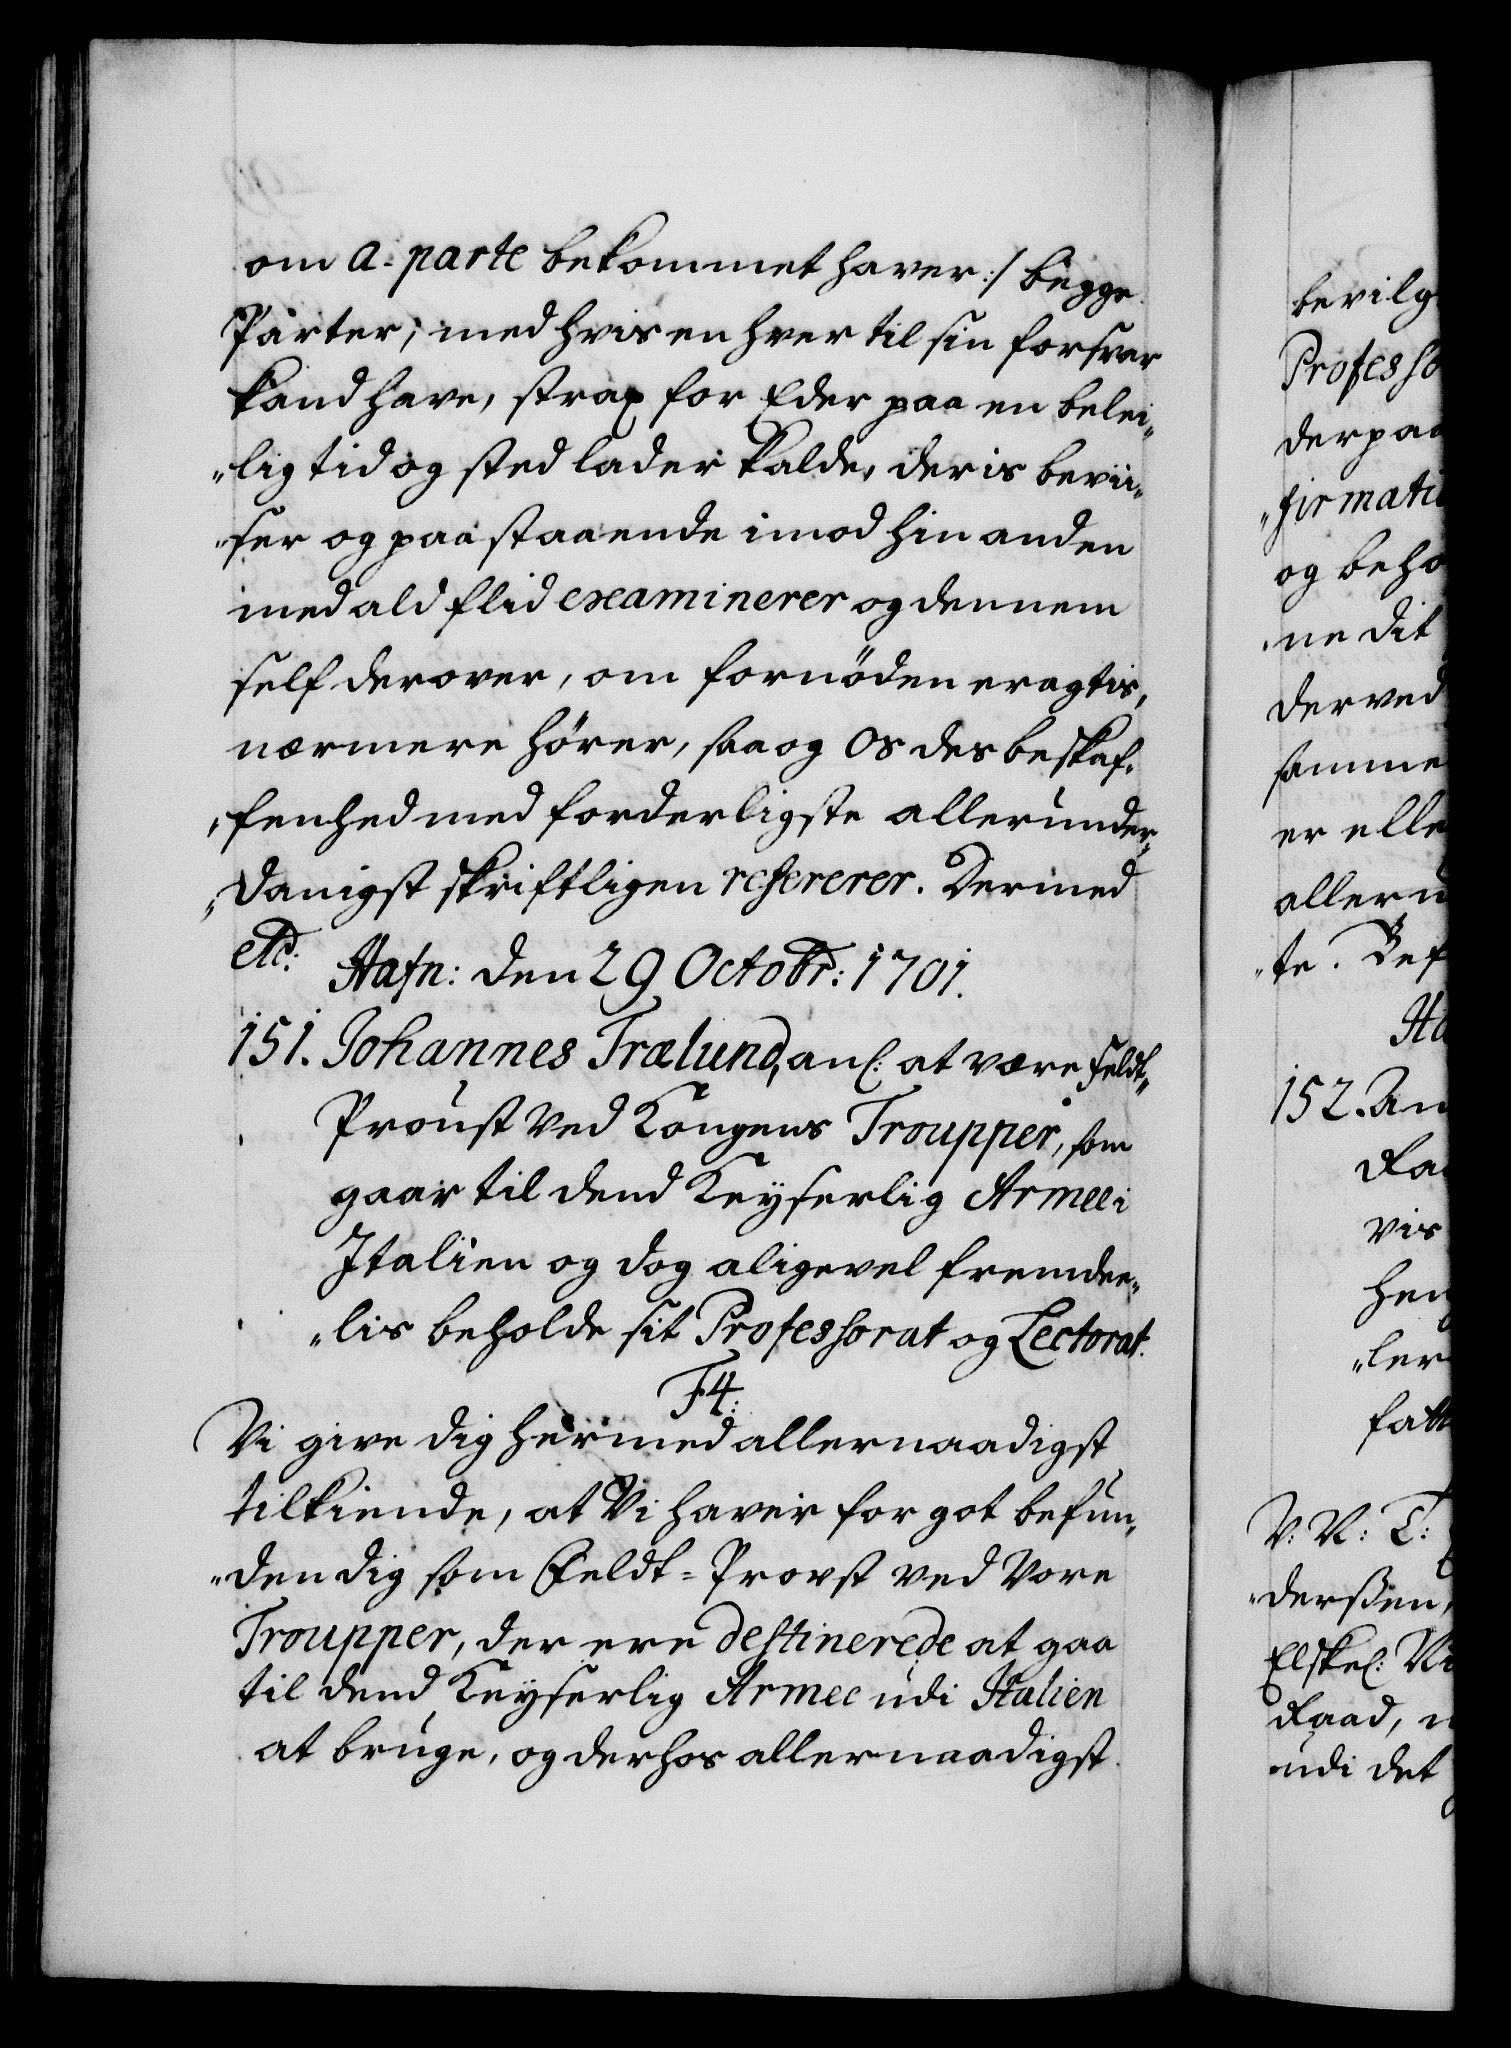 om a-parte bekommet haver :/ begge
Parter, med hvis en hver til sin forsvar
kand have, strax for Eder paa en belei„
„lig tid og sted lader kalde, deris bevii„
„ser og paastaaende imod hinanden
med ald flid examinerer og dennem
self derover, om fornöden eragtis,
nærmere hörer, saa og Os des beskaf„
„fenhed med forderligste allerunder„
„danigst skriftligen refererer. Dermed
etc: Hafn: den 29 Octobr: 1701.
151. Johannes Trælund, anl: at være Feldt„
Proust ved Kongens Troupper, som
gaar til dend Keyserlig Armee i
Italien og dog aligevel fremdee„
„lis beholde sit Professorat og Lectorat.
F4:
Vi give dig hermed allernaadigst
tilkiende, at Vi haver for got befun„
„den dig som Feldt-Provst ved Vore
Troupper, der ere destinerede at gaa
til dend Keyserlig Armee udi Italien
at bruge, og derhos allernaadigst
bevilg
Professo
derpaa
„firmati
og beho
„ne dit
derved
samme
er elle
alleru
„te. Bef
Ha
152. An
Raa
vis
hen
„ler
fatt
V: V: T:
„derssen,
Elskel: Vi
Raad,
udi det